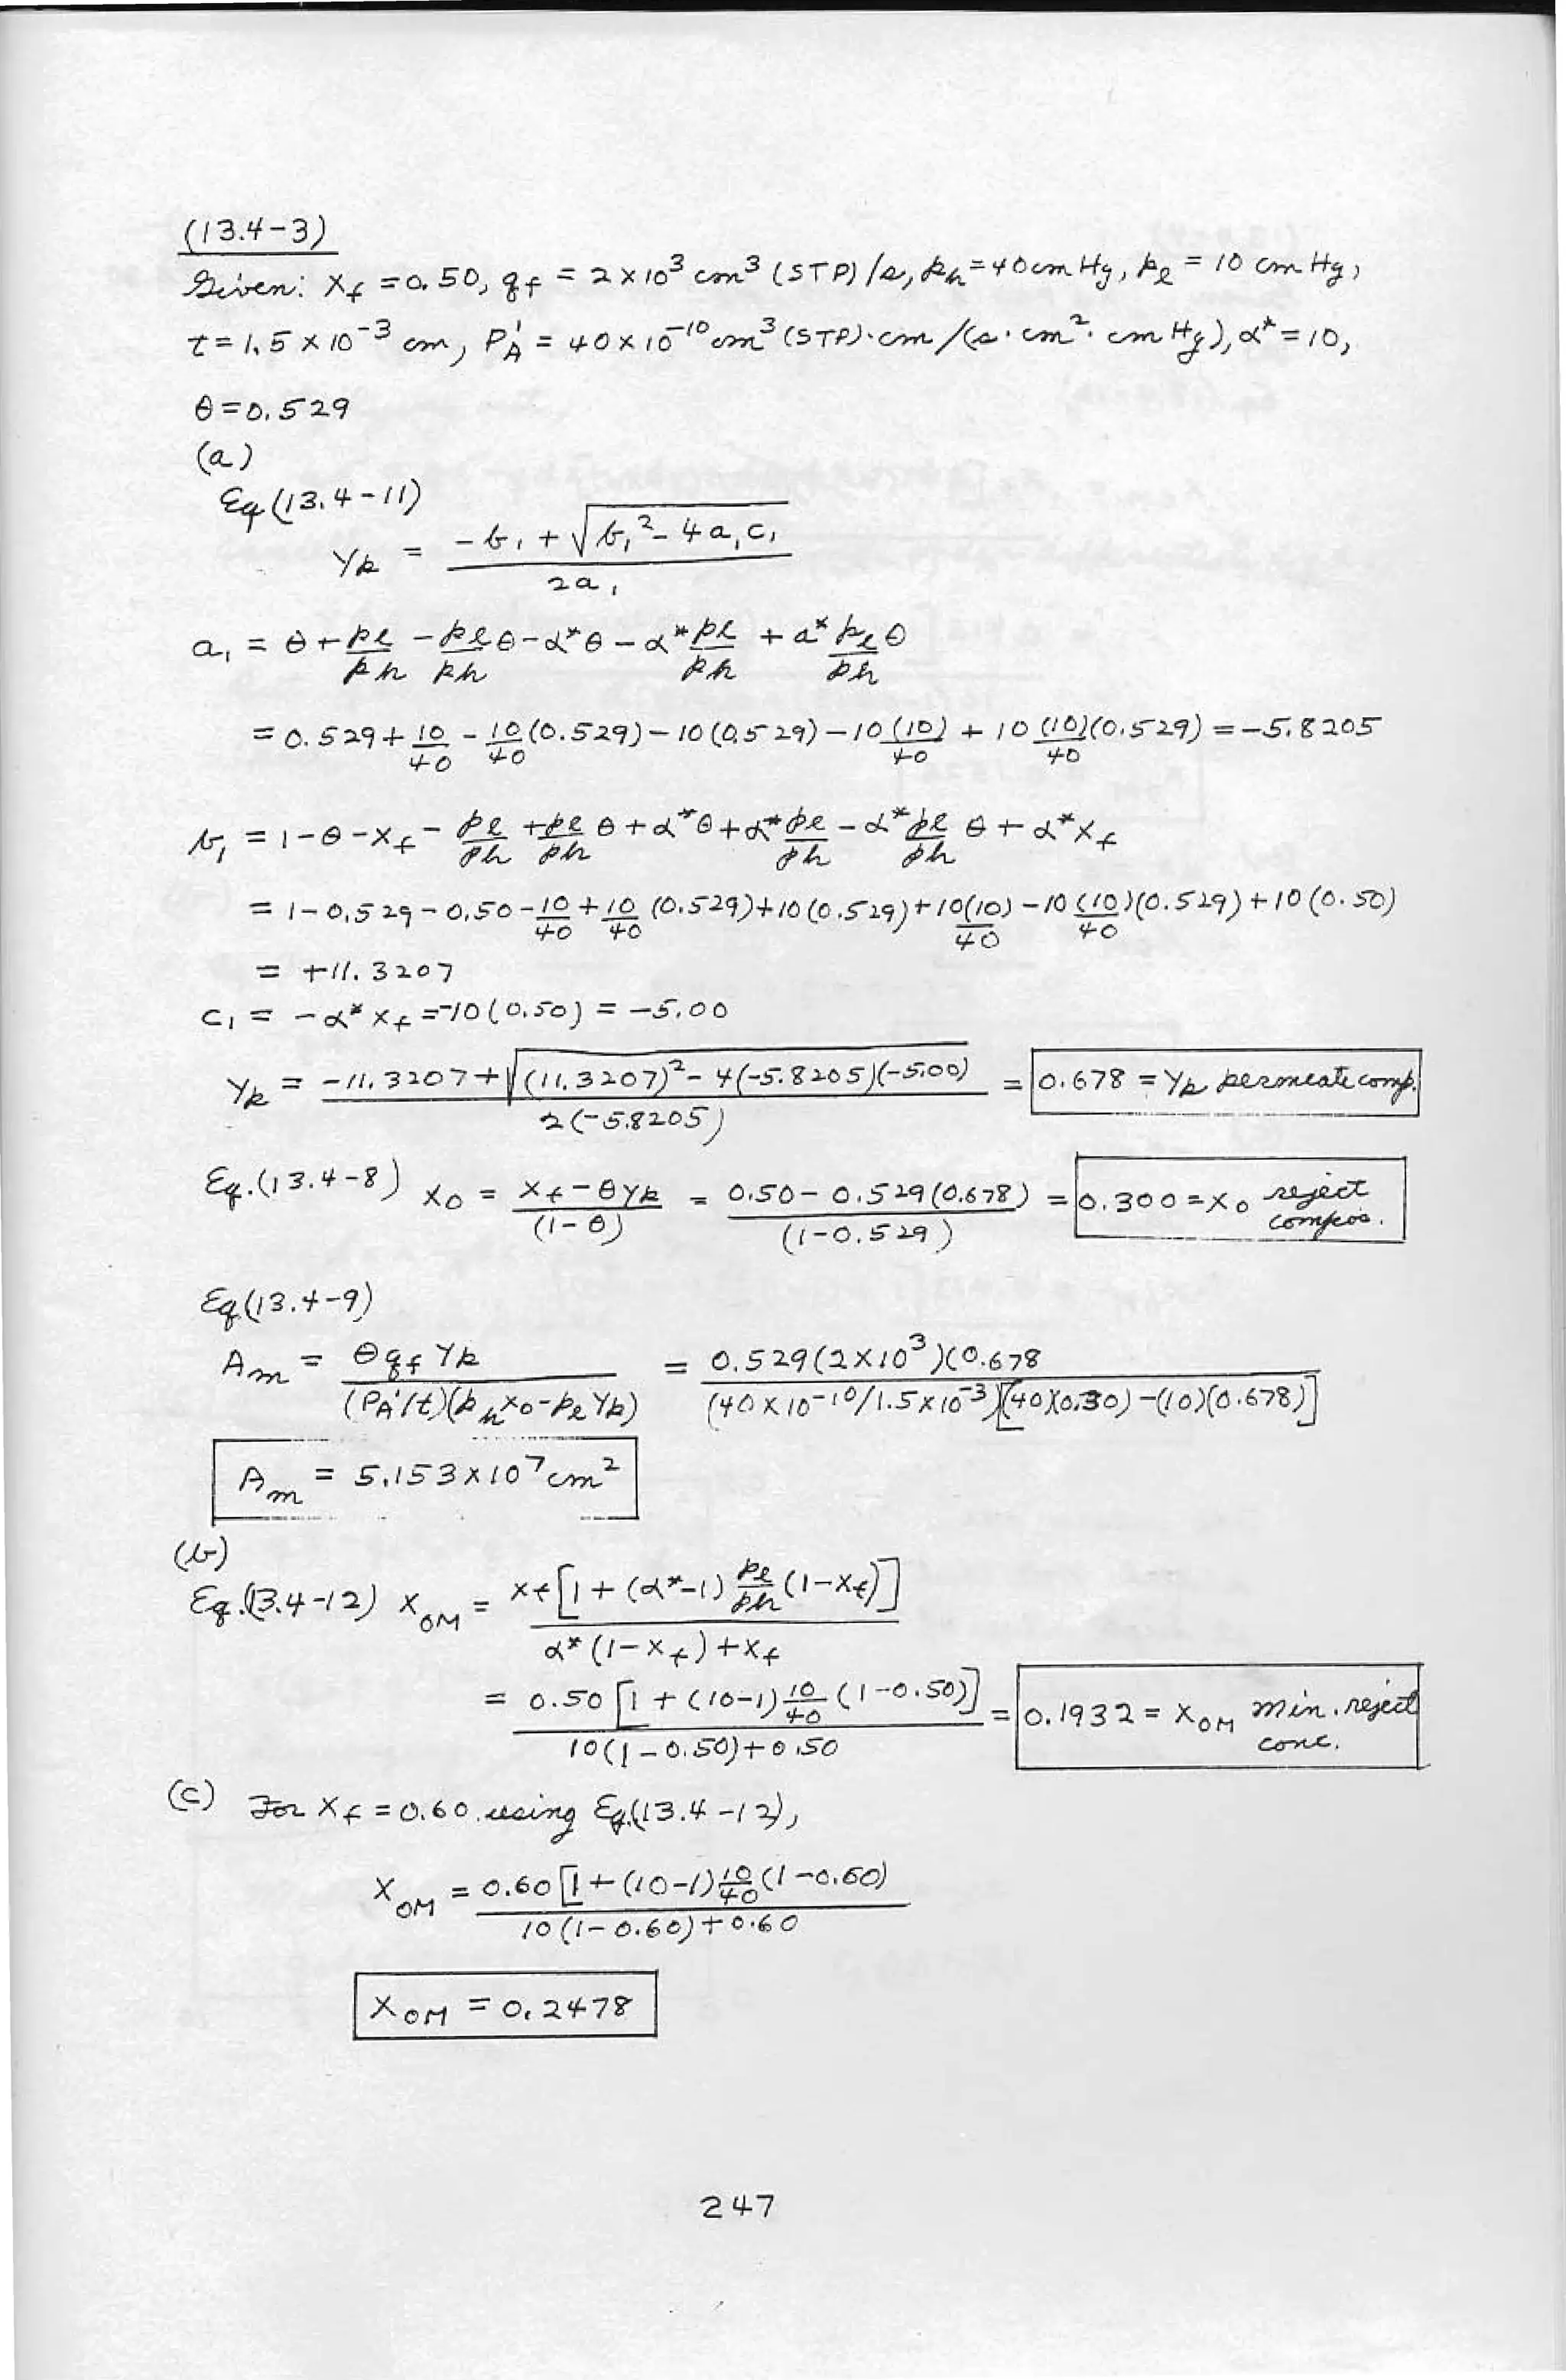 (13.4-3)
Given: Xf = 0.50, qf = 2 × 10³ cm³ (STP)/s, ph = 40 cm Hg, pl = 10 cm Hg,
t = 1.5 × 10⁻³ cm, PA' = 40 × 10⁻¹⁰ cm³ (STP)·cm/(s·cm²·cm Hg), α* = 10,
θ = 0.529
(a)
Eq (13.4-11)
yp = (-b₁ + √(b₁² - 4a₁c₁)) / 2a₁
a₁ = θ + pl/ph - pl/ph θ - α*θ - α* pl/ph + a* pl/ph θ
= 0.529 + 10/40 - 10/40 (0.529) - 10(0.529) - 10 (10)/40 + 10 (10)/40 (0.529) = -5.8205
b₁ = 1 - θ - Xf - pl/ph + pl/ph θ + α*θ + α* pl/ph - α* pl/ph θ + α*Xf
= 1 - 0.529 - 0.50 - 10/40 + 10/40 (0.529) + 10(0.529) + 10(10)/40 - 10 (10)/40 (0.529) + 10(0.50)
= +11.3207
c₁ = -α* Xf = -10(0.50) = -5.00
yp = (-11.3207 + √((11.3207)² - 4(-5.8205)(-5.00))) / 2(-5.8205) = 0.678 = yp permeate comp.
Eq. (13.4-8) xo = (xf - θyp)/(1-θ) = (0.50 - 0.529(0.678))/(1-0.529) = 0.300 = xo reject compos.
Eq (13.4-9)
Am = θ qf yp / (PA'/t)(ph xo - pl yp) = 0.529(2×10³)(0.678 / (40×10⁻¹⁰/1.5×10⁻³)[(40)(0.30) - (10)(0.678)]
Am = 5.153 × 10⁷ cm²
(b)
Eq. (13.4-12) xOM = xf[1 + (α*-1) pl/ph (1-xf)] / α*(1-xf) + xf
= 0.50[1 + (10-1) 10/40 (1-0.50)] / 10(1-0.50) + 0.50 = 0.1932 = xOM min. reject conc.
(c) For Xf = 0.60 using Eq. (13.4-12),
XOM = 0.60[1 + (10-1) 10/40 (1-0.60) / 10(1-0.60) + 0.60
XOM = 0.2478
247